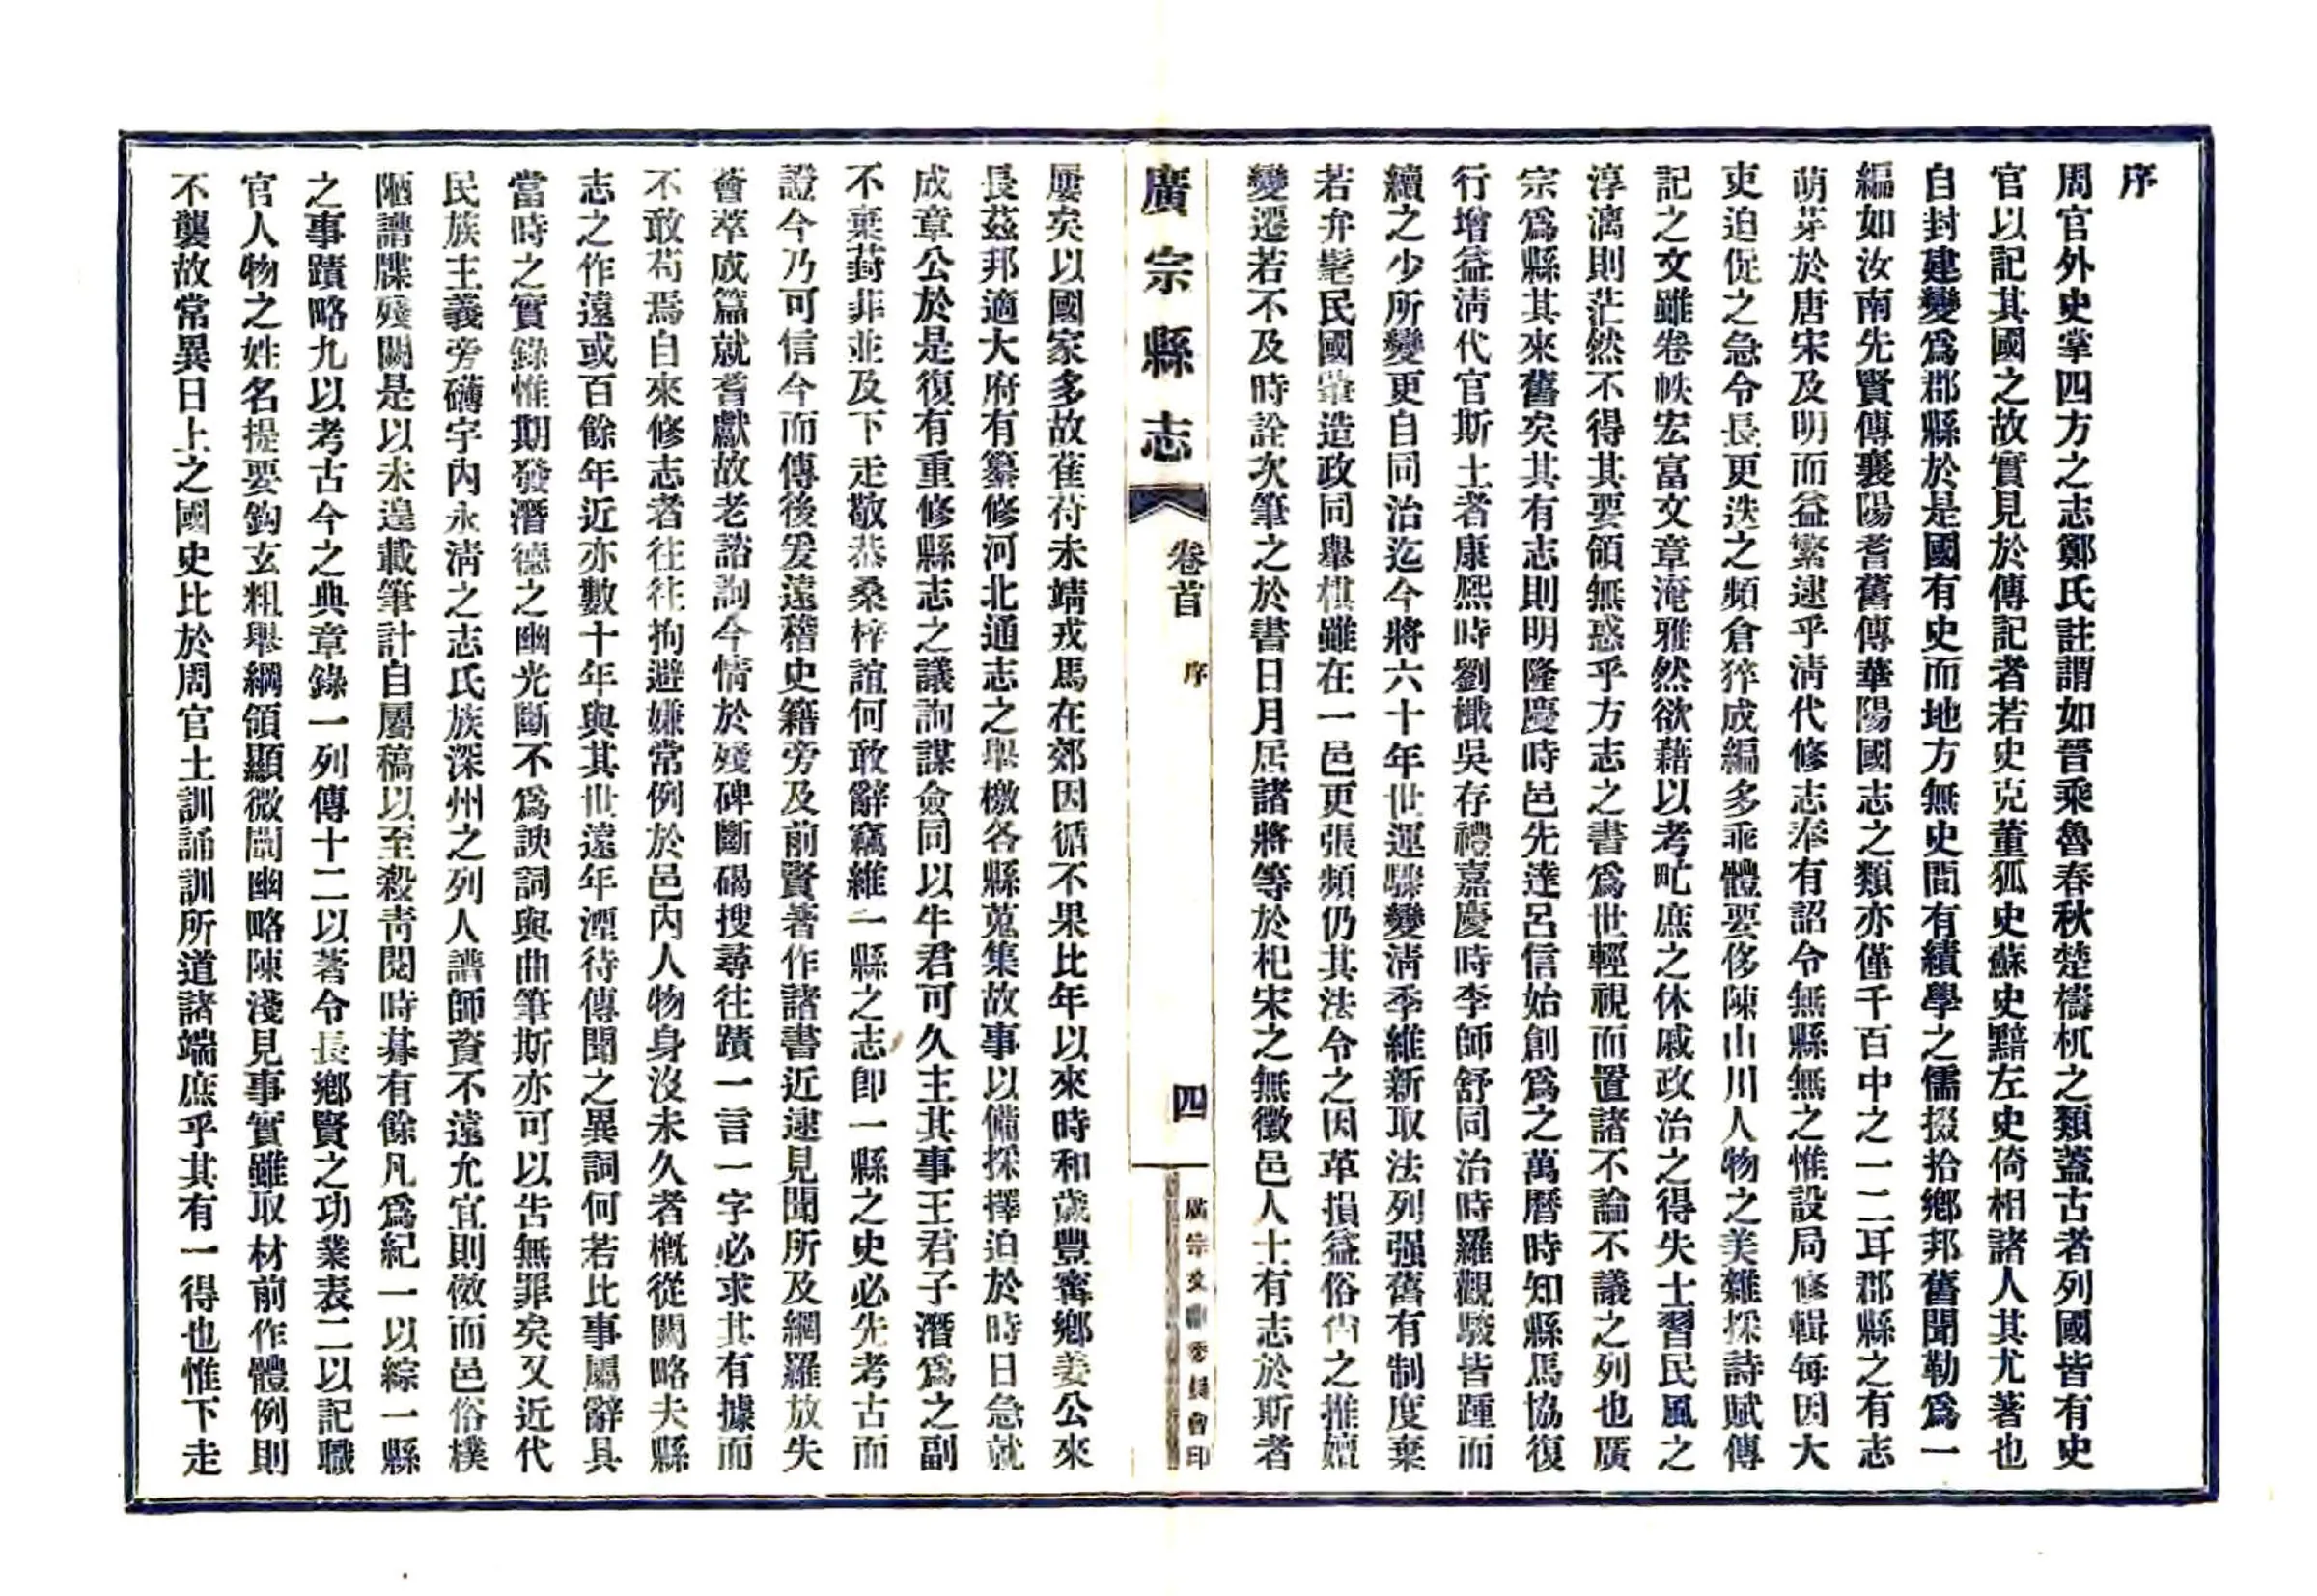 序
周官外史掌四方之志鄭氏註謂如晉乘魯春秋楚檮杌之類蓋古者列國皆有史
官以記其國之故實見於傳記者若史克董狐史蘇史黯左史倚相諸人其尤著也
自封建變爲郡縣於是國有史而地方無史間有績學之儒掇拾鄉邦舊聞勒爲一
編如汝南先賢傳襄陽耆舊傳華陽國志之類亦僅千百中之一二耳郡縣之有志
萌芽於唐宋及明而益繁逮乎清代修志奉有詔令無縣無之惟設局修輯每因大
吏迫促之急令長更迭之頻倉猝成編多乖體要侈陳山川人物之美雜採詩賦傳
記之文雖卷帙宏富文章淹雅然欲藉以考甿庶之休戚政治之得失士習民風之
淳漓則茫然不得其要領無惑乎方志之書爲世輕視而置諸不論不議之列也廣
宗爲縣其來舊矣其有志則明隆慶時邑先達呂信始創爲之萬曆時知縣馬協復
行增益清代官斯土者康熙時劉檝吳存禮嘉慶時李師舒同治時羅觀駿皆踵而
續之少所變更自同治迄今將六十年世運驟變清季維新取法列强舊有制度棄
若弁髦民國肇造政同舉棋雖在一邑更張頻仍其法令之因革損益俗尚之推嬗
變遷若不及時詮次筆之於書日月居諸將等於杞宋之無徵邑人士有志於斯者
廣宗縣志
卷首
序
四
廣宗文獻委員會印
屢矣以國家多故萑苻未靖戎馬在郊因循不果比年以來時和歲豐寗鄉姜公來
長茲邦適大府有纂修河北通志之舉檄各縣蒐集故事以備採擇迫於時日急就
成章公於是復有重修縣志之議詢謀僉同以牛君可久主其事王君子潛爲之副
不棄葑菲並及下走敬恭桑梓誼何敢辭竊維一縣之志卽一縣之史必先考古而
證今乃可信今而傳後爰遠稽史籍旁及前賢著作諸書近逮見聞所及網羅放失
薈萃成篇就耆獻故老諮詢今情於殘碑斷碣搜尋往蹟一言一字必求其有據而
不敢苟焉自來修志者往往拘避嫌常例於邑內人物身沒未久者槪從闕略夫縣
志之作遠或百餘年近亦數十年與其世遠年湮待傳聞之異詞何若比事屬辭具
當時之實錄惟期發潛德之幽光斷不爲諛詞與曲筆斯亦可以告無罪矣又近代
民族主義旁礡宇內永清之志氏族深州之列人譜師資不遠允宜則傚而邑俗樸
陋譜牒殘闕是以未遑載筆計自屬稿以至殺靑閱時朞有餘凡爲紀一以綜一縣
之事蹟略九以考古今之典章錄一列傳十二以著令長鄉賢之功業表二以記職
官人物之姓名提要鈎玄粗舉綱領顯微闡幽略陳淺見事實雖取材前作體例則
不襲故常異日上之國史比於周官土訓誦訓所道諸端庶乎其有一得也惟下走